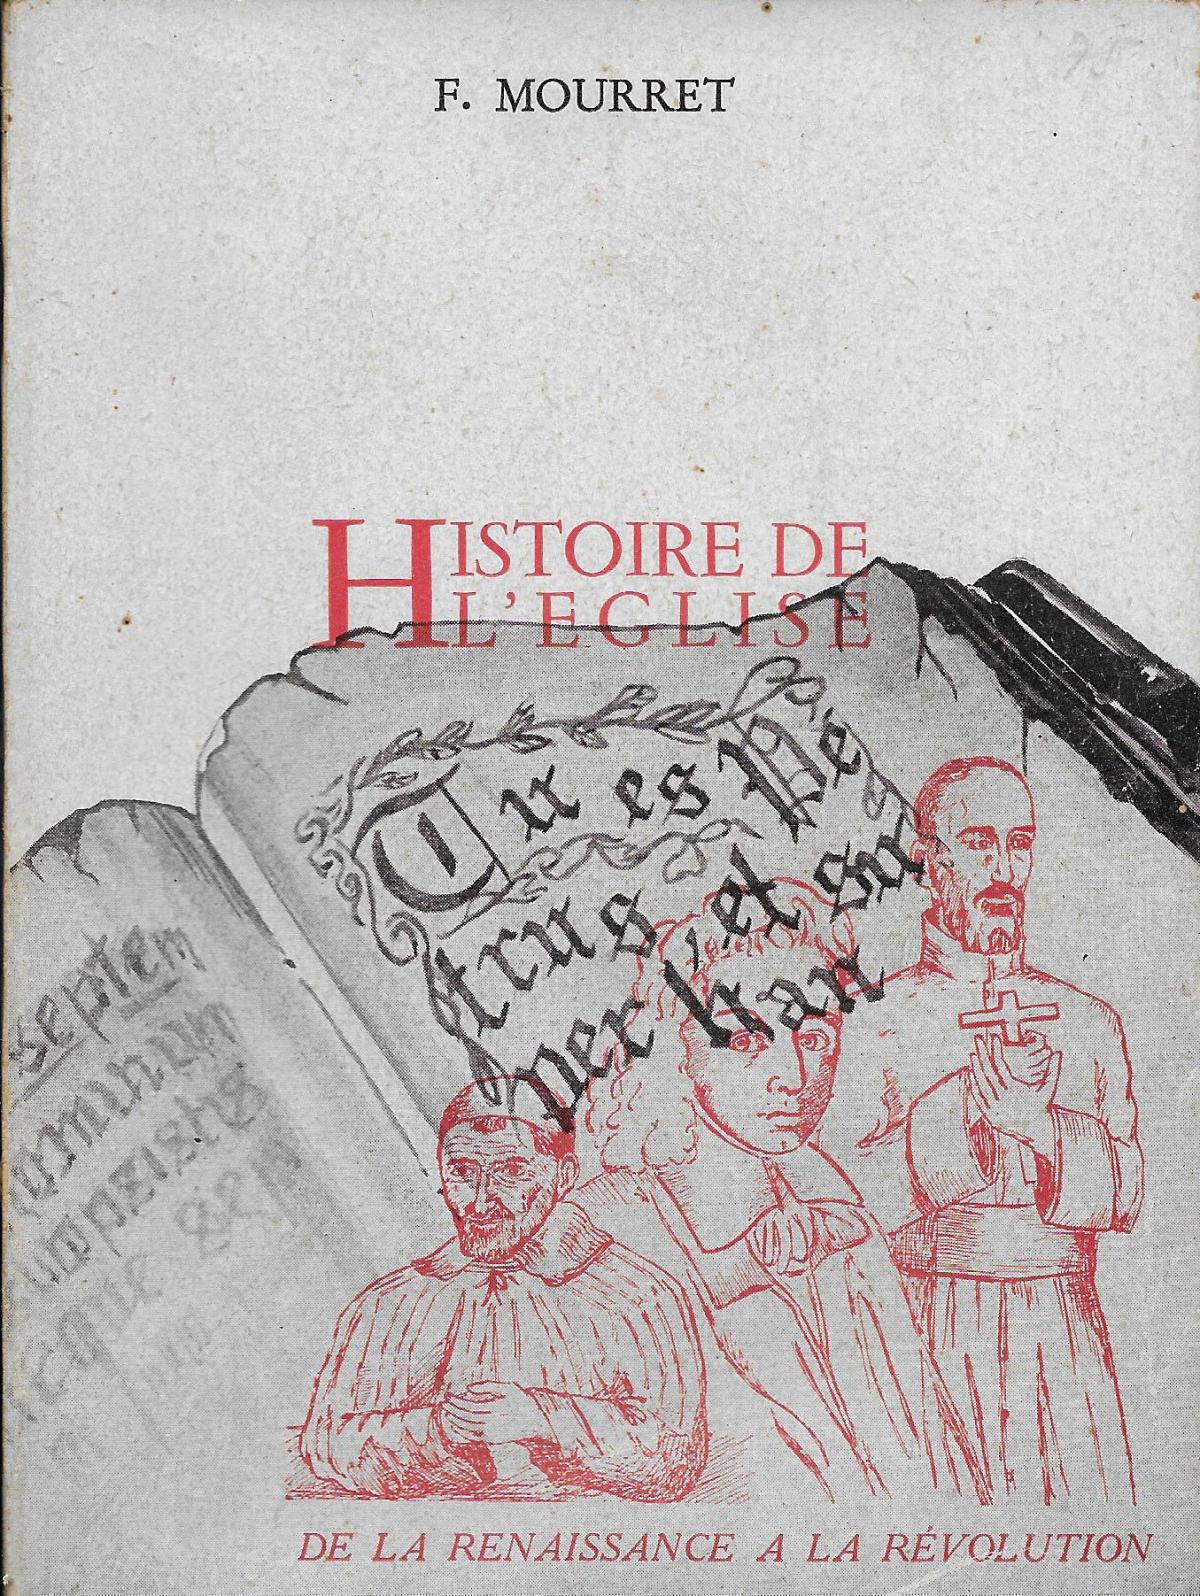 F. MOURRET
HISTOIRE DE
L'EGLISE
Tu es Pé
trus, et su
per han
septem
DE LA RENAISSANCE A LA RÉVOLUTION